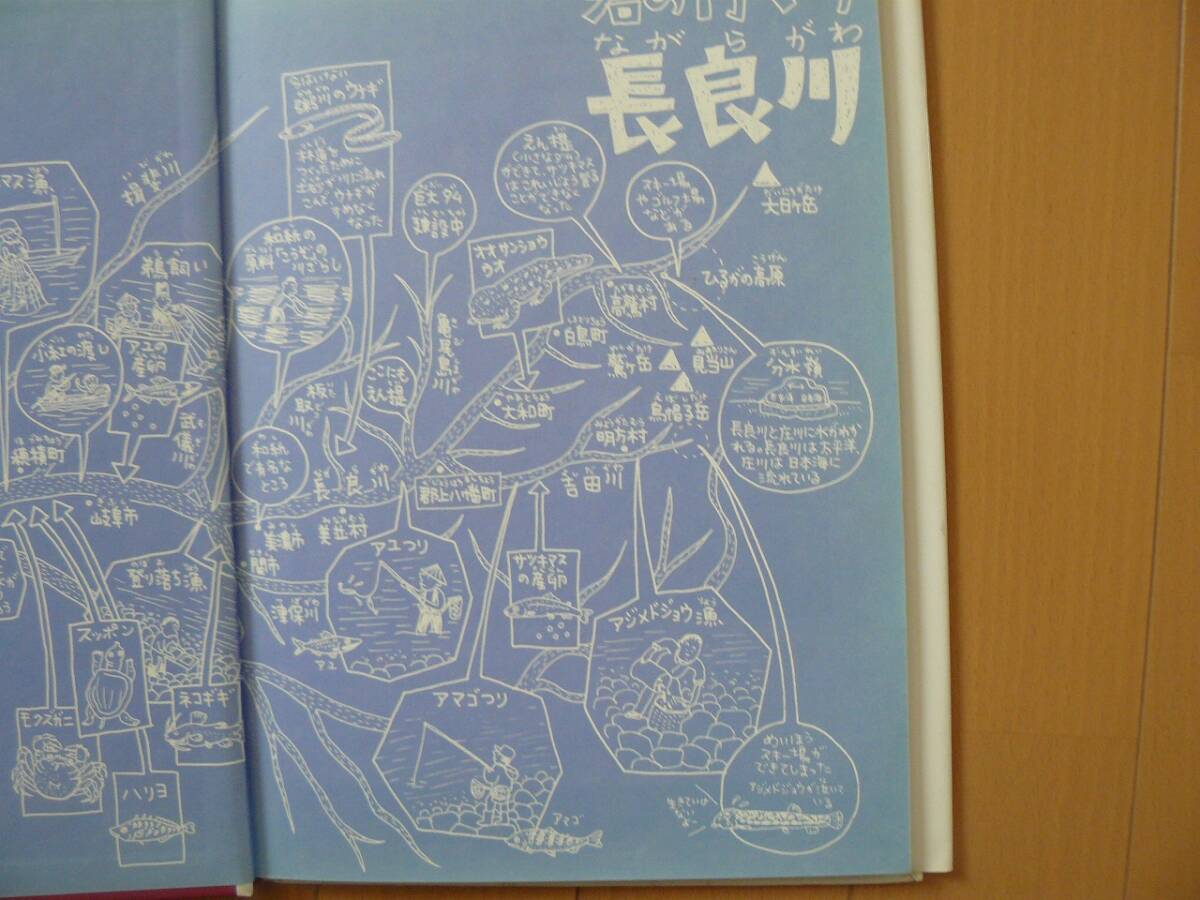 ながらがわ
長良川
粥川のウナギ
林道を
つくったために
土砂が川に流れ
こんで、ウナギが
すめなく
なった
えん堤
(小さなダム)
ができて、サツキマス
はこれいじょう
ことができなく
なった
スキー場
やゴルフ場
などが
ある
大日ヶ岳
ひるがの高原
こうげん
巨大ダム
建設中
オオサンショウ
ウオ
高鷲村
白鳥町
鷲ヶ岳
見当山
烏帽子岳
分水嶺
長良川と庄川に水がわか
れる。長良川は太平洋、
庄川は日本海に
流れている
マス漁
揖斐川
鵜飼い
和紙の
原料「こうぞ」の
川ざらし
小紅の渡し
アユの
産卵
武儀川
穂積町
板取川
ここにも
えん堤
亀尾島川
大和町
明方村
和紙
で有名な
ところ
長良川
郡上八幡町
吉田川
岐阜市
美濃市
美並村
関市
津保川
アユ
アユつり
サツキマス
の産卵
アジメドジョウ漁
登り落ち漁
スッポン
モクズガニ
ネコギギ
ハリヨ
アマゴつり
アマゴ
めいほう
スキー場が
できてしまった
アジメドジョウが泣いて
いる